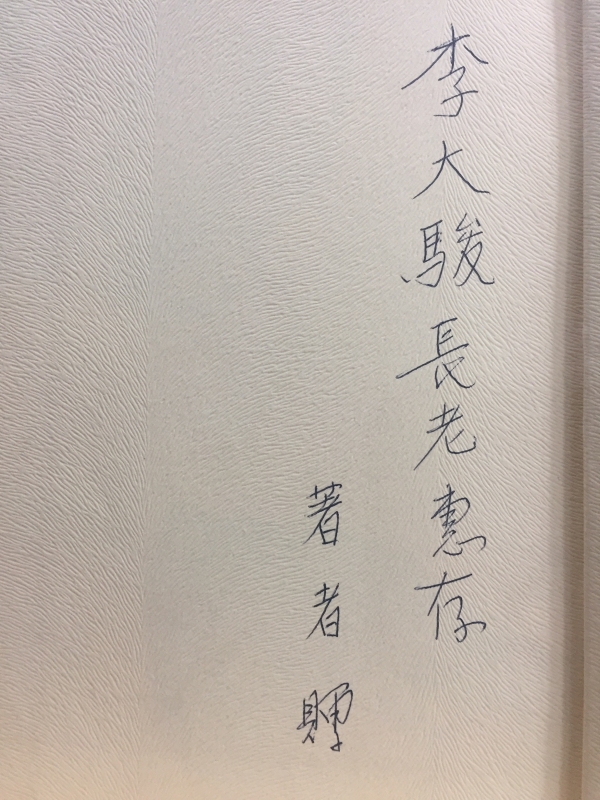 李大駿長老惠存
著者贈